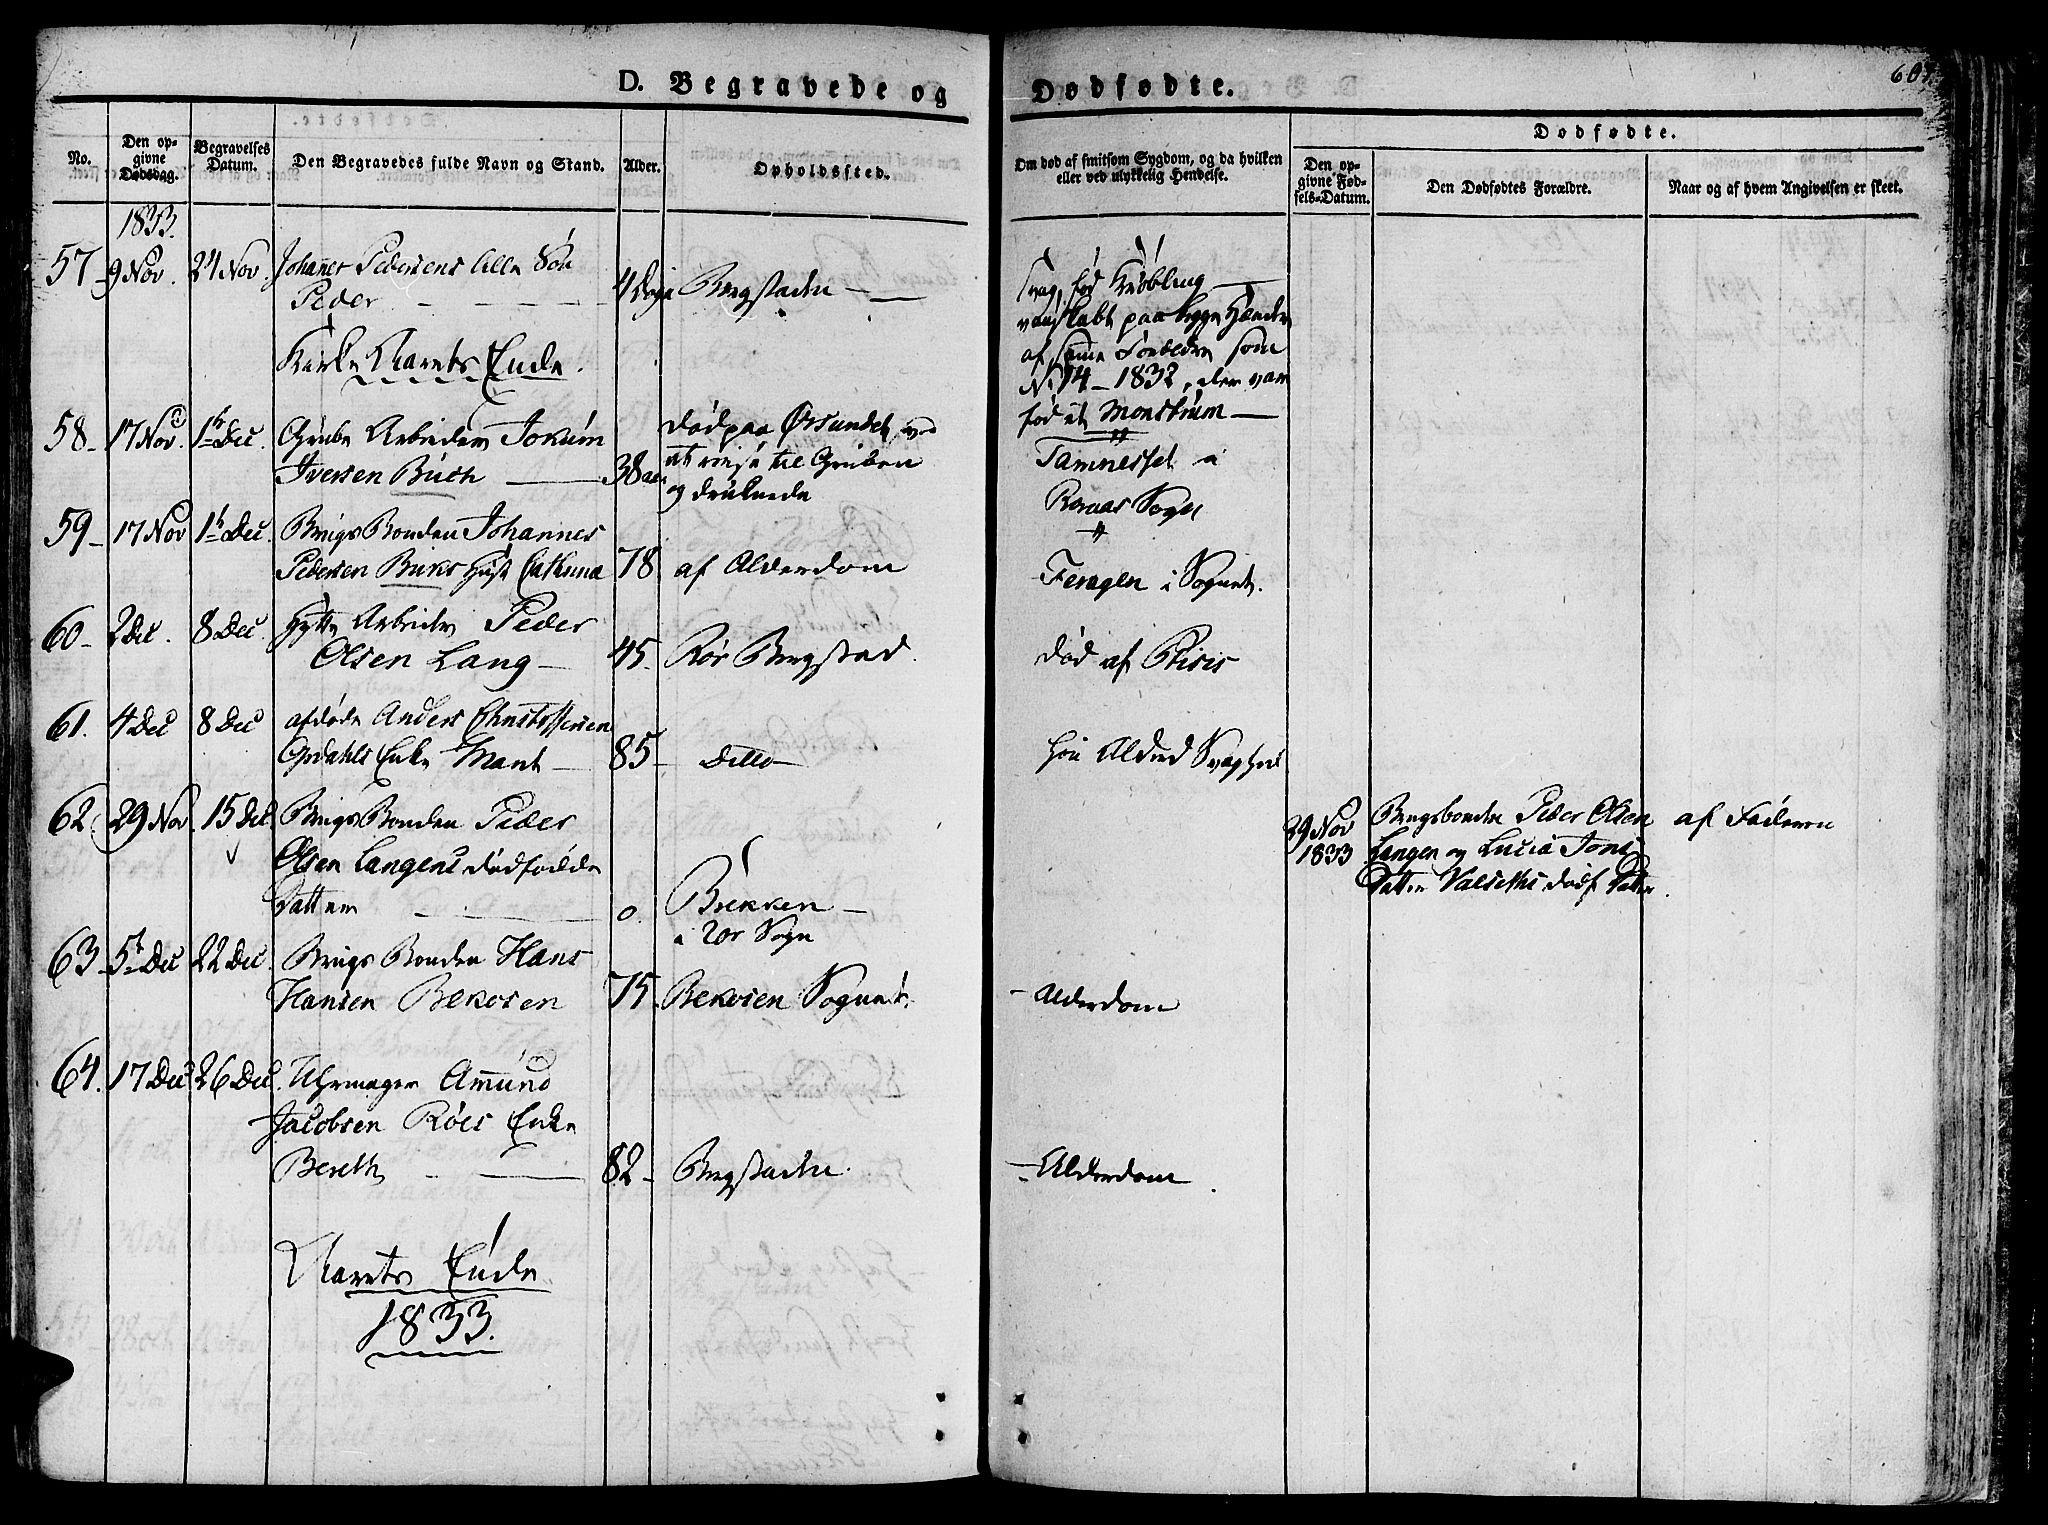 D. Begravede og
Dødfødte.
Dødfødte.
No.
Den op-
givne
Dødsdag.
Begravelses
Datum.
Den Begravedes fulde Navn og Stand.
Alder.
Opholdssted.
Om død af smitsom Sygdom, og da hvilken
eller ved ulykkelig Hendelse.
Den op-
givne Fød-
sels-Datum.
Den Dødfødtes Forældre.
Naar og af hvem Angivelsen er skeet.
1833.
57 9 Nov. 24 Nov. Johannes Pedersens lille Søn
Peder 4 Dage Bergstaden
Svag, fød Krøbling
vanskabt paa begge Hænder
af samme Forældre som
No 14 - 1832, der var
fød et Monstrum
Kirke Aarets Ende.
58 17 Nov. 1te Dec. Grube Arbeider Jokum
Iversen Buch 38 aar
død paa Ørsundet, ved
at reise til Gruben
og druknede
Tamnesset i
Roraas Sogn
59 17 Nov 1te Dec. Brugs Bonden Johannes
Pedersen Buks 78 af Alderdom
Feragen i Sognet.
60 2 Dec. 8 Dec. Hytte Arbeider Peder
Olsen Lang 45 Rør Bergstad.
død af Ptisis
61. 4 Dec 8 Dec afdøde Anders Christoffersen
Opdahls Enke Marit 85 ditto
høi Alder Svaghed
62 29 Nov 15 Dec. Brugs Bonden Peder
Olsen Langens dødfødde
Datter 0. Brekken
i Rør Sogn
29 Nov
1833
Brugsbonden Peder Olsen
Langen og Lucia Jons
Datter Valseths dødf. Datter.
af Faderen
63 5te Dec 22 Dec. Brugs Bonden Hans
Hansen Bekosen 75 Bekosen Sognet.
Alderdom
64. 17 Dec 26 Dec. Uhrmager Amund
Jacobsen Røes Enke
Bereth 82 Bergstaden.
Alderdom.
Aarets Ende
1833.